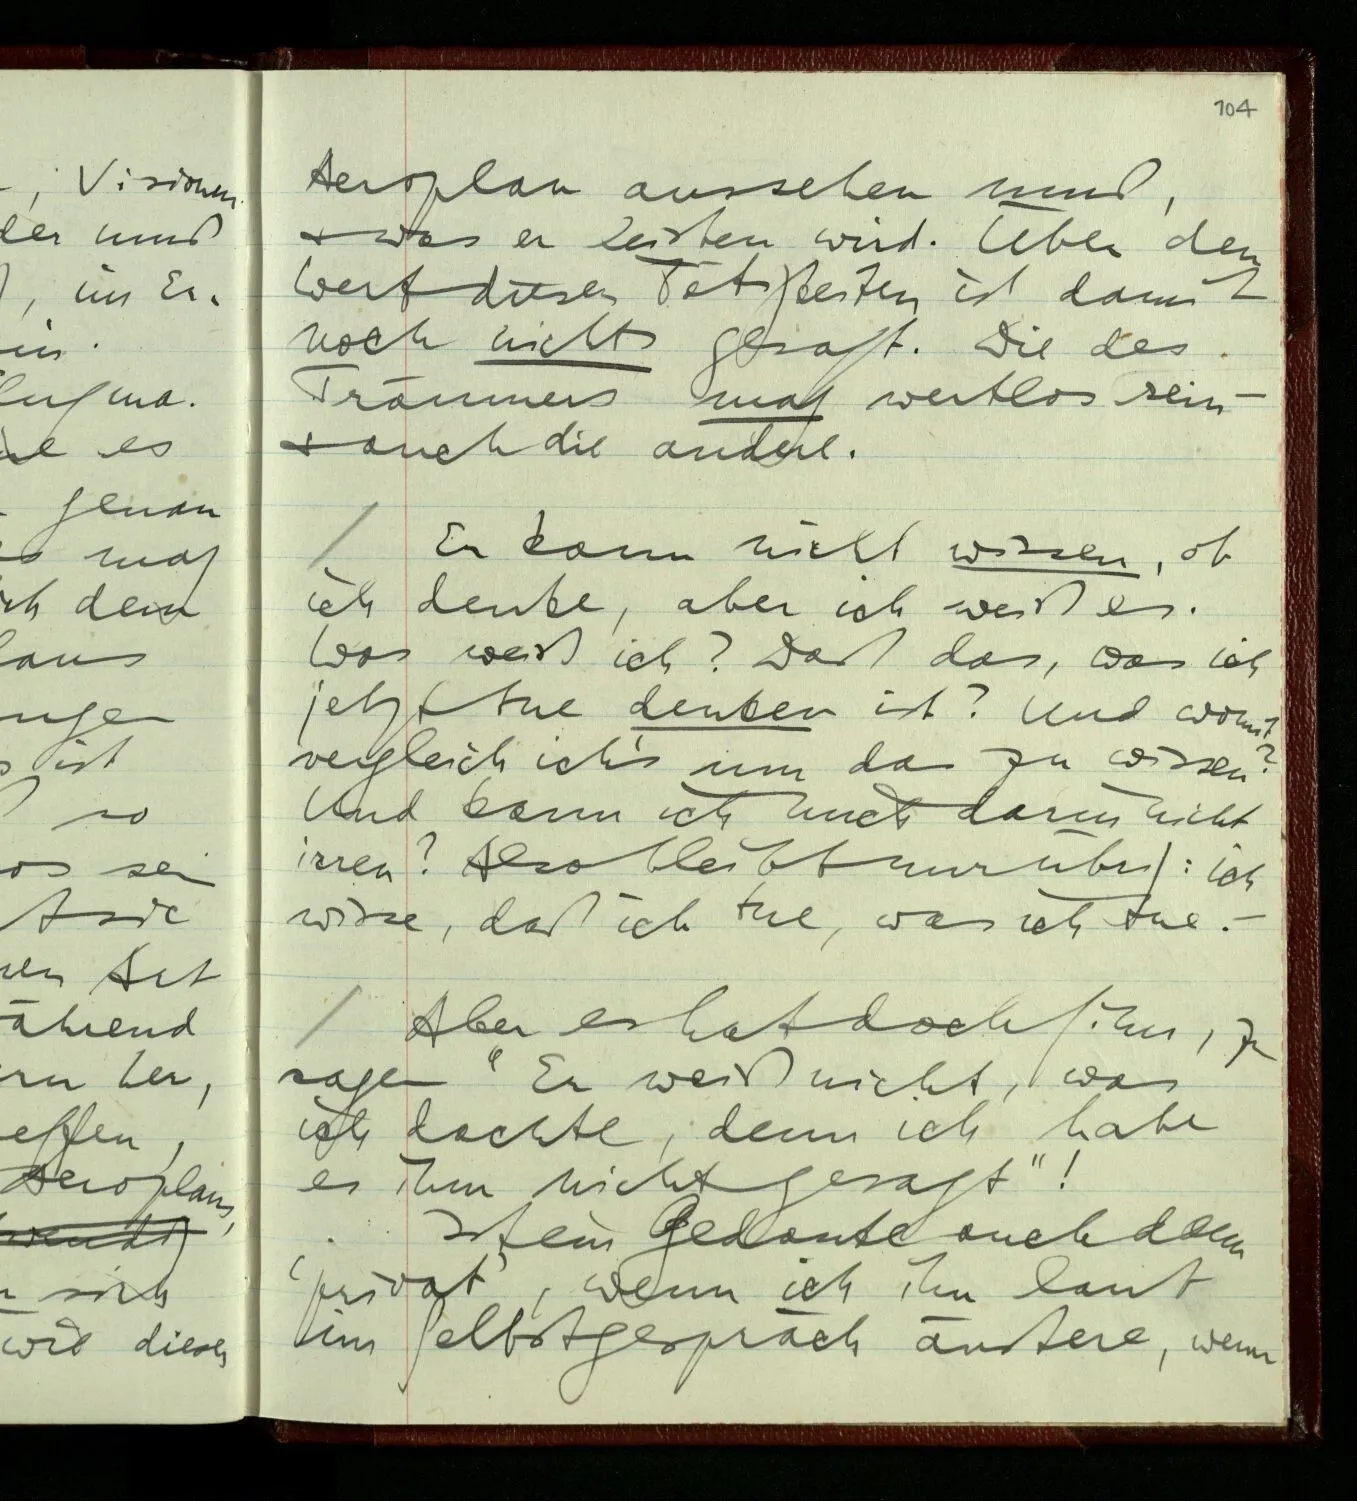 , Visionen
der muß
, im Er-
in.
lugma-
e es
genau
mag
ch dem
aus
ungen
ist
so
os sei
sie
en Art
ährend
rn her,
effen,
Aeroplans,
sich
wie dieses
104
Aeroplan aussehen muß,
& was er leisten wird. Über den
Wert dieser Tätigkeiten ist damit
noch nichts gesagt. Die des
Träumers mag wertlos sein –
& auch die andere.
/ Er kann nicht wissen, ob
ich denke, aber ich weiß es.
Was weiß ich? Daß das, was ich
jetzt tue denken ist? Und womit
vergleich ich's um das zu wissen?
Und kann ich mich darin nicht
irren? Also bleibt nur übrig: ich
wisse, daß ich tue, was ich tue. –
/ Aber es hat doch Sinn, zu
sagen “Er weiß nicht, was
ich dachte, denn ich habe
es ihm nicht gesagt”!
Ist ein Gedanke auch dann
‘privat’, wenn ich ihn laut
im Selbstgespräch äußere, wenn